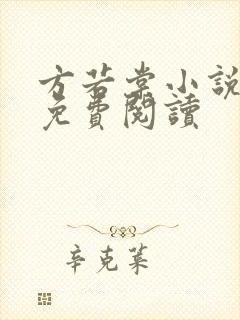 方若堂小說
免費閱讀
辛克萊